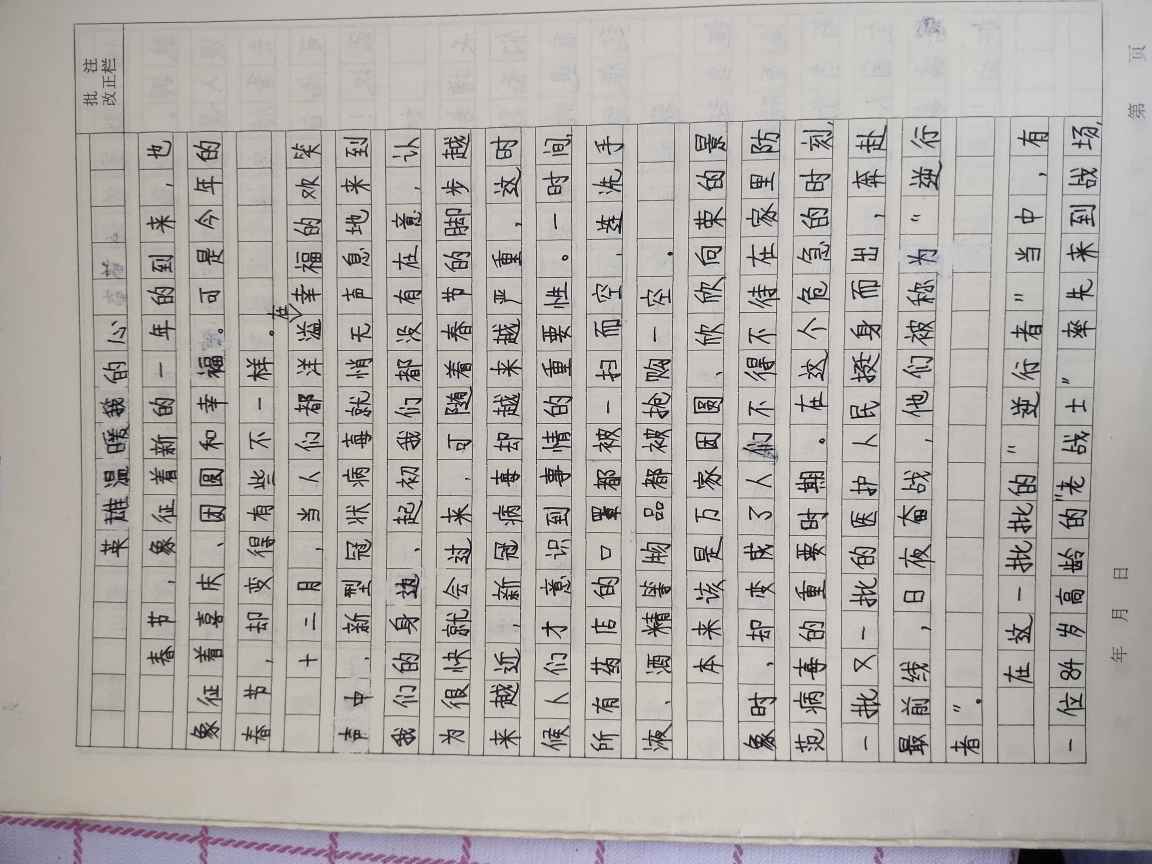 批注
改正栏
英雄温暖我的心
春节，象征着新的一年的到来，也
象征着喜庆、团圆和幸福。可是今年的
春节，却变得有些不一样。
十二月，当人们都洋溢在幸福的欢笑
声中，新型冠状病毒就悄无声息地来到
我们的身边，起初我们都没有在意，认
为很快就会过来，可随着春节的脚步越
来越近，新冠病毒却越来越严重，这时
候人们才意识到事情的重要性。一时间，
所有药店的口罩都被一扫而空，连洗手
液、酒精等物品都被抢购一空。
本来该是万家团圆、欣欣向荣的景
象时，却变成了人们不得不待在家里防
范病毒的重要时期。在这个危急的时刻，
一批又一批的医护人民挺身而出，奔赴
最前线，日夜奋战，他们被称为“逆行
者”。
在这一批批的“逆行者”当中，有
一位84岁高龄的“老战士”率先来到战场，
年月日
第 页